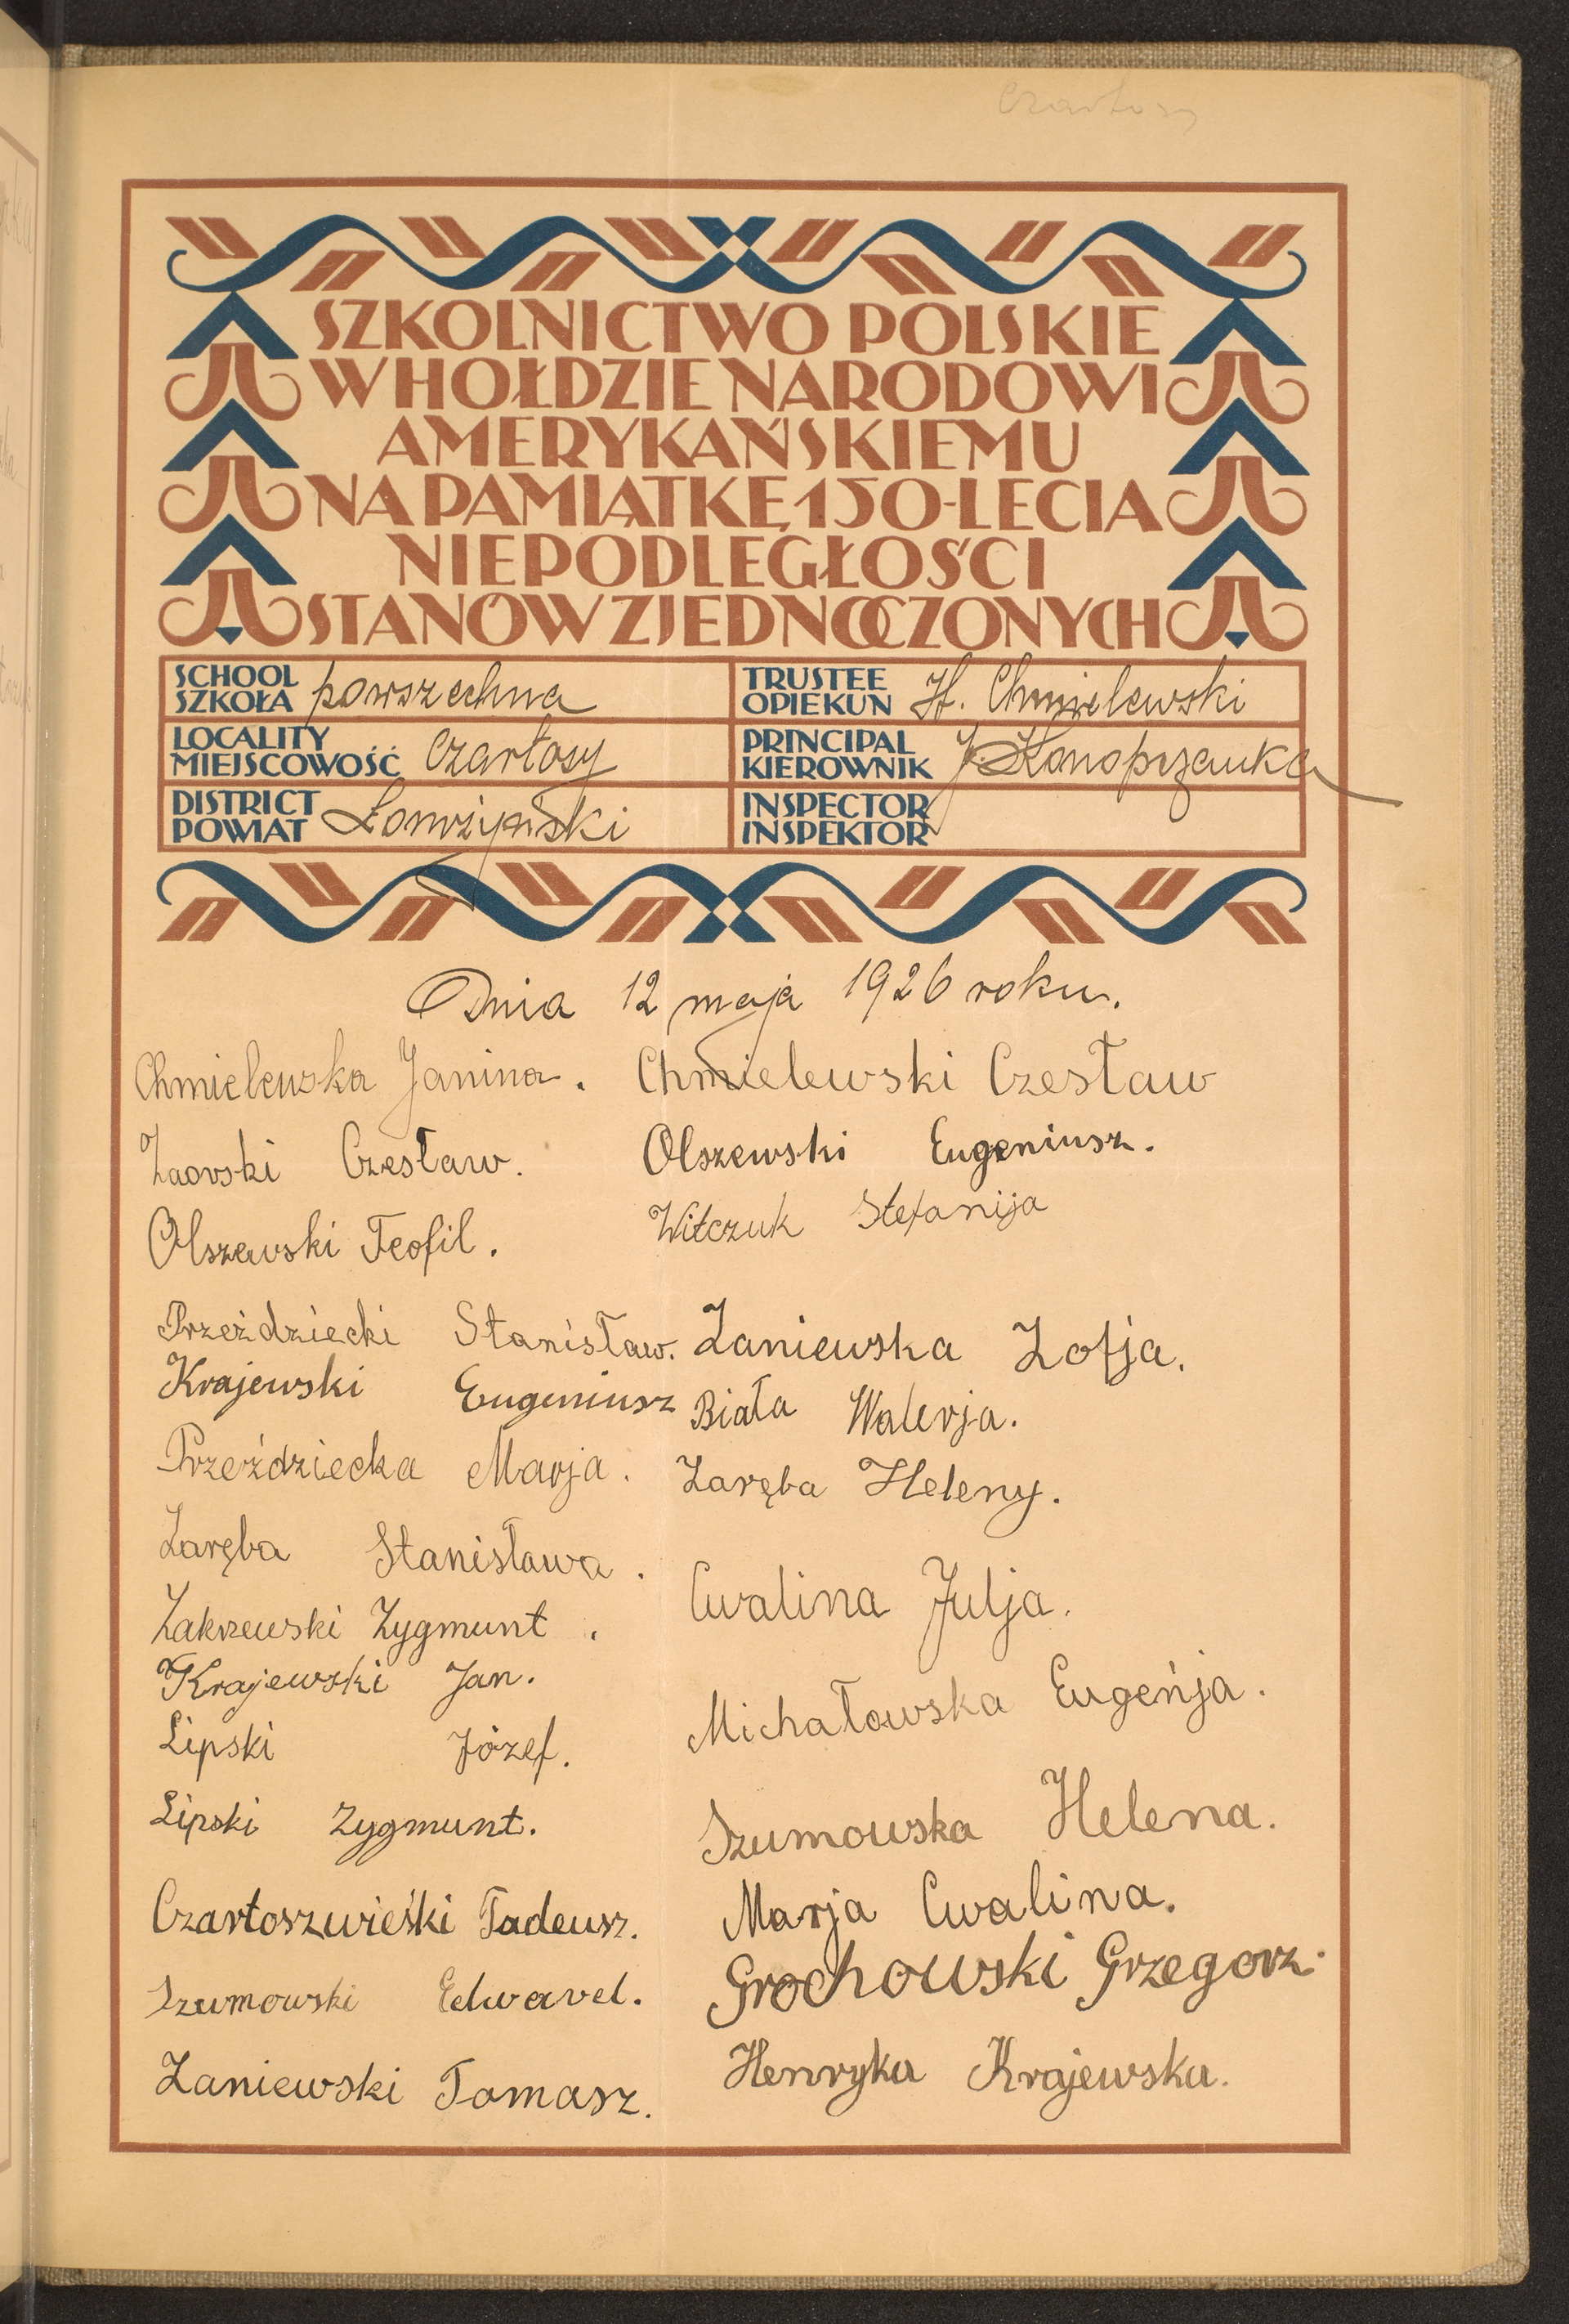 Czartosy
SZKOLNICTWO POLSKIE
W HOŁDZIE NARODOWI
AMERYKAŃSKIEMU
NA PAMIĄTKĘ 150-LECIA
NIEPODLEGŁOŚCI
STANÓW ZJEDNOCZONYCH
SCHOOL
SZKOŁA powszechna
TRUSTEE
OPIEKUN H. Chmielewski
LOCALITY
MIEJSCOWOŚĆ Czartosy
PRINCIPAL
KIEROWNIK J. Konoprzanka
DISTRICT
POWIAT Łomżyński
INSPECTOR
INSPEKTOR
Dnia 12 maja 1926 roku.
Chmielewska Janina.
Chmielewski Czesław
Czesław.
Olszewski Eugeniusz.
Olszewski Teofil.
Witczuk Stefanija
Przeździecki Stanisław.
Zaniewska Zofja.
Krajewski Eugeniusz
Biała Walerja.
Przeździecka Marja.
Zaręba Heleny.
Zaręba Stanisława.
Cwalina Julja.
Zakrzewski Zygmunt.
Krajewski Jan.
Michałowska Eugeńja.
Lipski Józef.
Lipski Zygmunt.
Szumowska Helena.
Czartoszwieśki Tadeusz.
Marja Cwalina.
Szumowski Edward.
Grochowski Grzegorz.
Zaniewski Tomasz.
Henryka Krajewska.